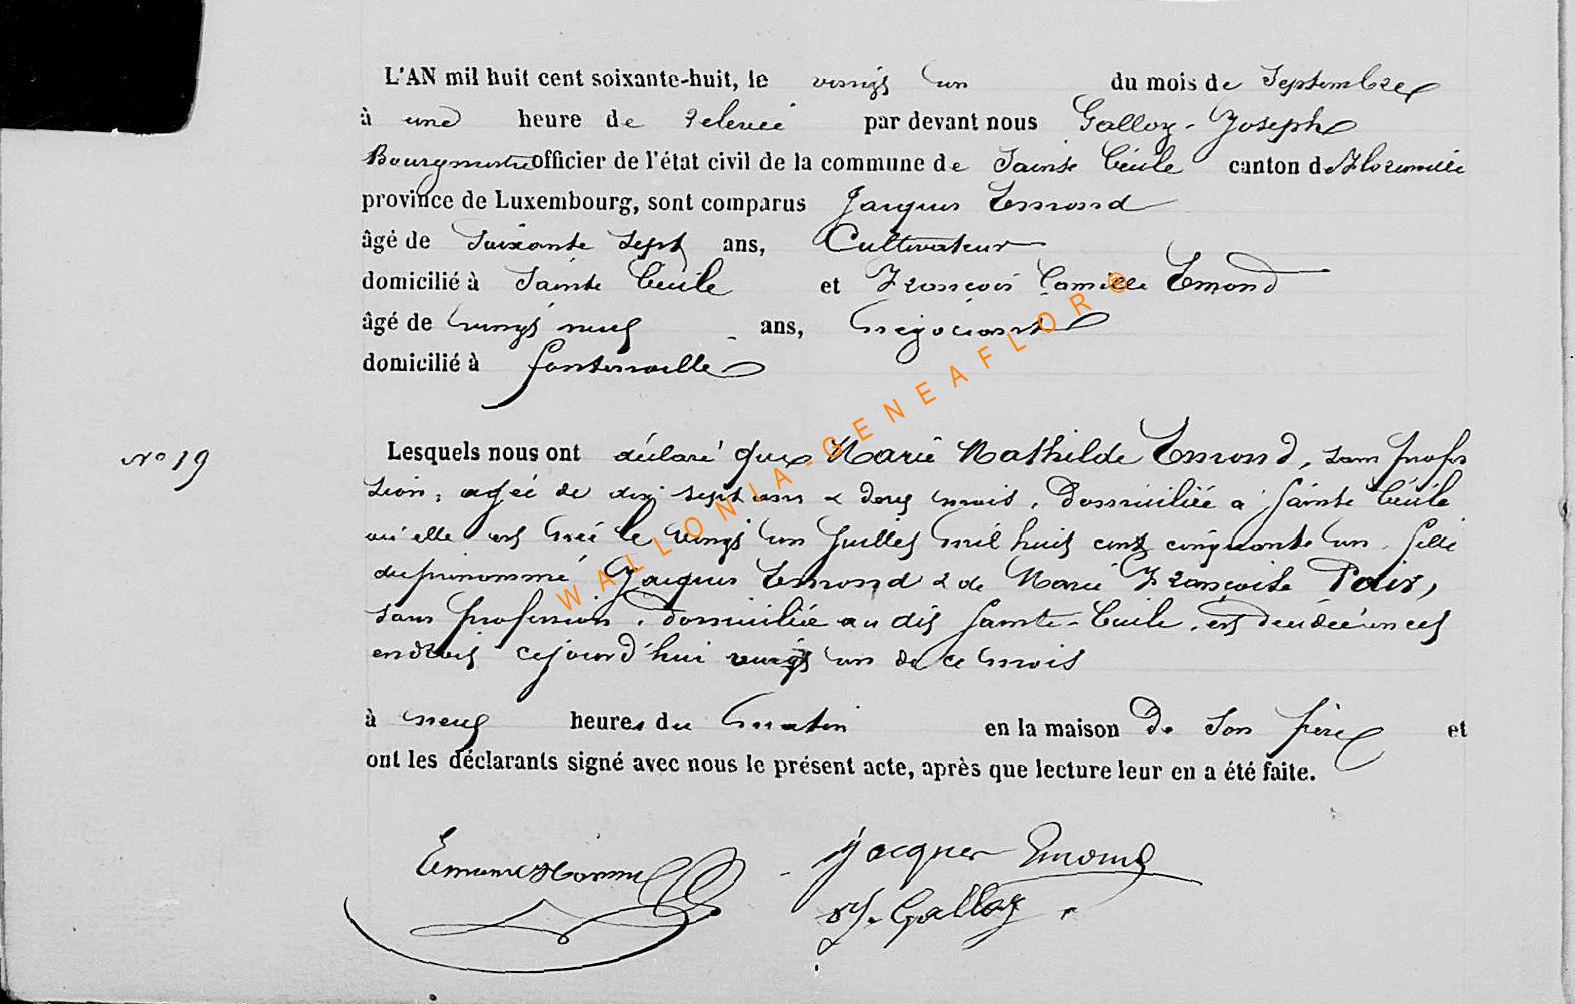 L'AN mil huit cent soixante-huit, le vingt un du mois de Septembre
à une heure de relevée par devant nous Galloy Joseph
Bourgmestre officier de l'état civil de la commune de Sainte Cécile canton de Florenville
province de Luxembourg, sont comparus Jacques Emond
âgé de Soixante Sept ans, Cultivateur
domicilié à Sainte Cécile et François Camille Emond
âgé de vingt neuf ans, négociant
domicilié à fontenoille
N° 19
Lesquels nous ont déclaré que Marie Mathilde Emond, sans profes
sion, agée de dix sept ans & deux mois, domiciliée à Sainte Cécile
où elle est née le vingt un Juillet mil huit cent cinquante un, fille
du prénommé Jacques Emond & de Marie Françoise Pair,
sans profession, domiciliée au dit Sainte-Cécile, est décédée en cet
endroit cejourd'hui vingt un de ce mois
à neuf heures du matin en la maison de son père et
ont les déclarants signé avec nous le présent acte, après que lecture leur en a été faite.
Jacques Emond
J. Galloy
WALLONIA-GENEAFLOR ©